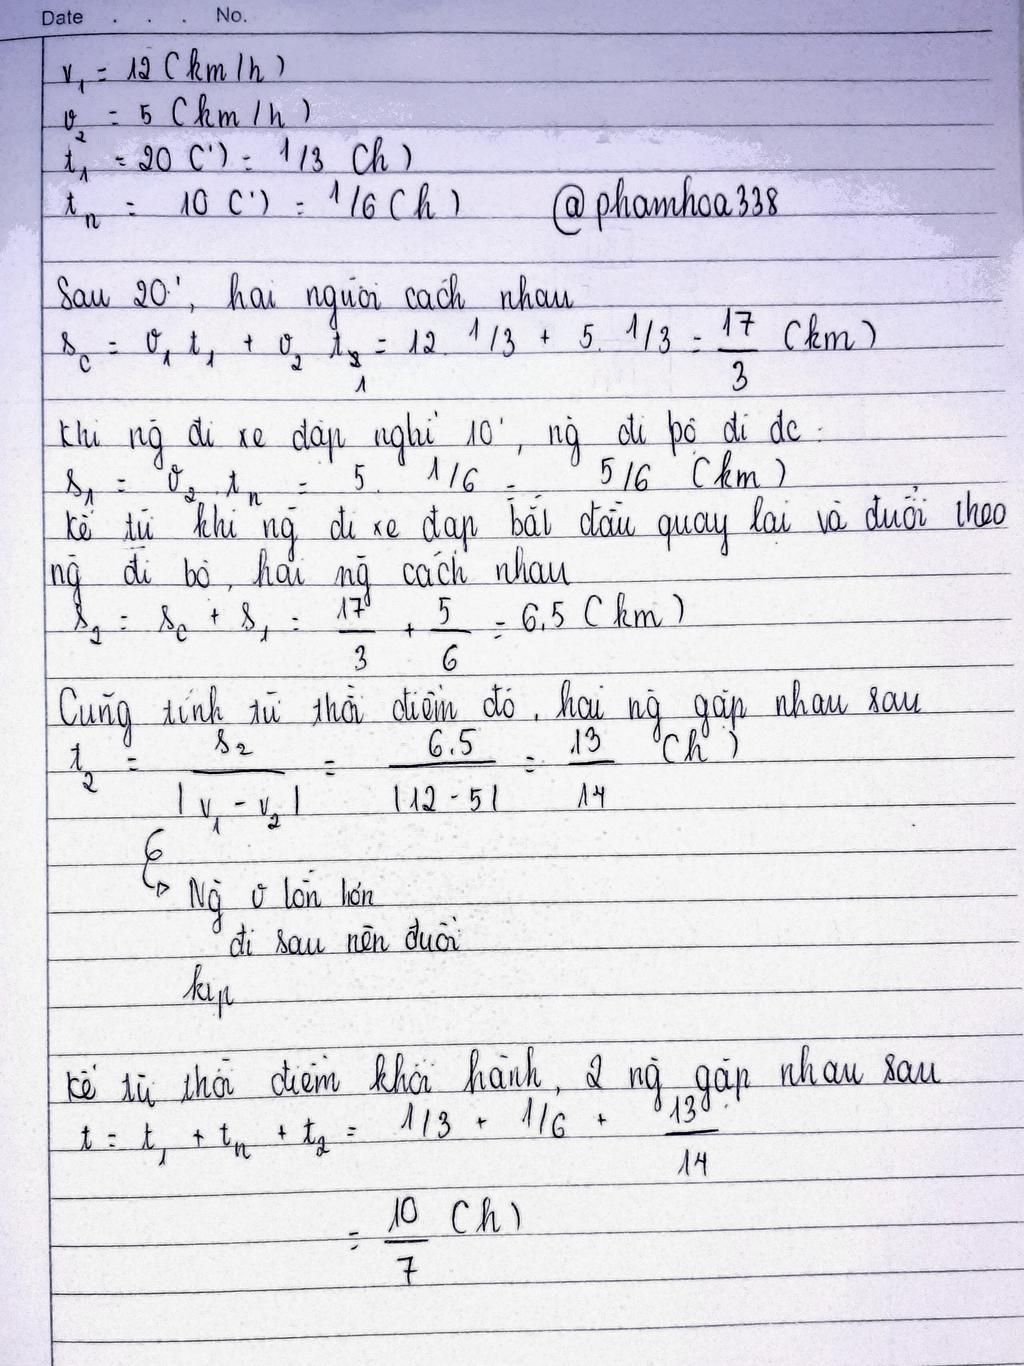 Date . . . No.
v₁ = 12 (km/h)
v₂ = 5 (km/h)
t₁ = 20 (') = 1/3 (h)
tₙ = 10 (') = 1/6 (h) @phamhoa338
Sau 20', hai người cách nhau
s_c = v₁ t₁ + v₂ t₁ = 12. 1/3 + 5. 1/3 = 17/3 (km)
Khi ng̀ đi xe đạp nghỉ 10', ng̀ đi bộ đi đc :
s₁ = v₂ . tₙ = 5. 1/6 = 5/6 (km)
Kể từ khi ng̀ đi xe đạp bắt đầu quay lại và đuổi theo
ng̀ đi bộ, hai ng̀ cách nhau
s₂ = s_c + s₁ = 17/3 + 5/6 = 6.5 (km)
Cũng tính từ thời điểm đó, hai ng̀ gặp nhau sau
t₂ = s₂/|v₁ - v₂| = 6.5/|12 - 5| = 13/14 (h)
Ng̀ v lớn hơn
đi sau nên đuổi
kịp
Kể từ thời điểm khởi hành, 2 ng̀ gặp nhau sau
t = t₁ + tₙ + t₂ = 1/3 + 1/6 + 13/14
= 10/7 (h)